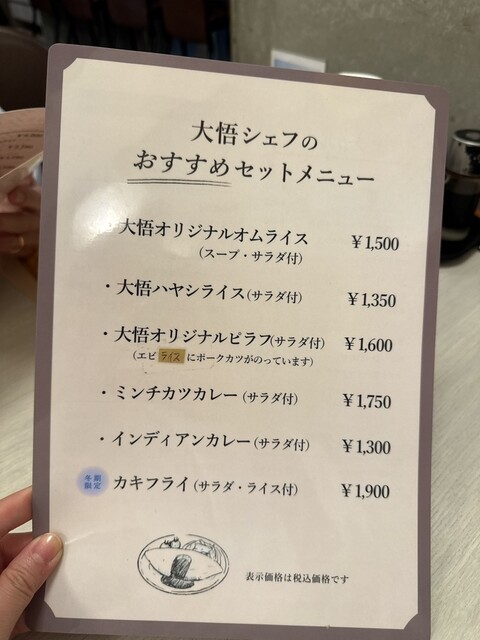 大悟シェフの
おすすめセットメニュー
・大悟オリジナルオムライス ¥1,500
(スープ・サラダ付)
・大悟ハヤシライス(サラダ付) ¥1,350
・大悟オリジナルピラフ(サラダ付) ¥1,600
(エビライスにポークカツがのっています)
・ミンチカツカレー(サラダ付) ¥1,750
・インディアンカレー(サラダ付) ¥1,300
冬期
限定
カキフライ(サラダ・ライス付) ¥1,900
表示価格は税込価格です